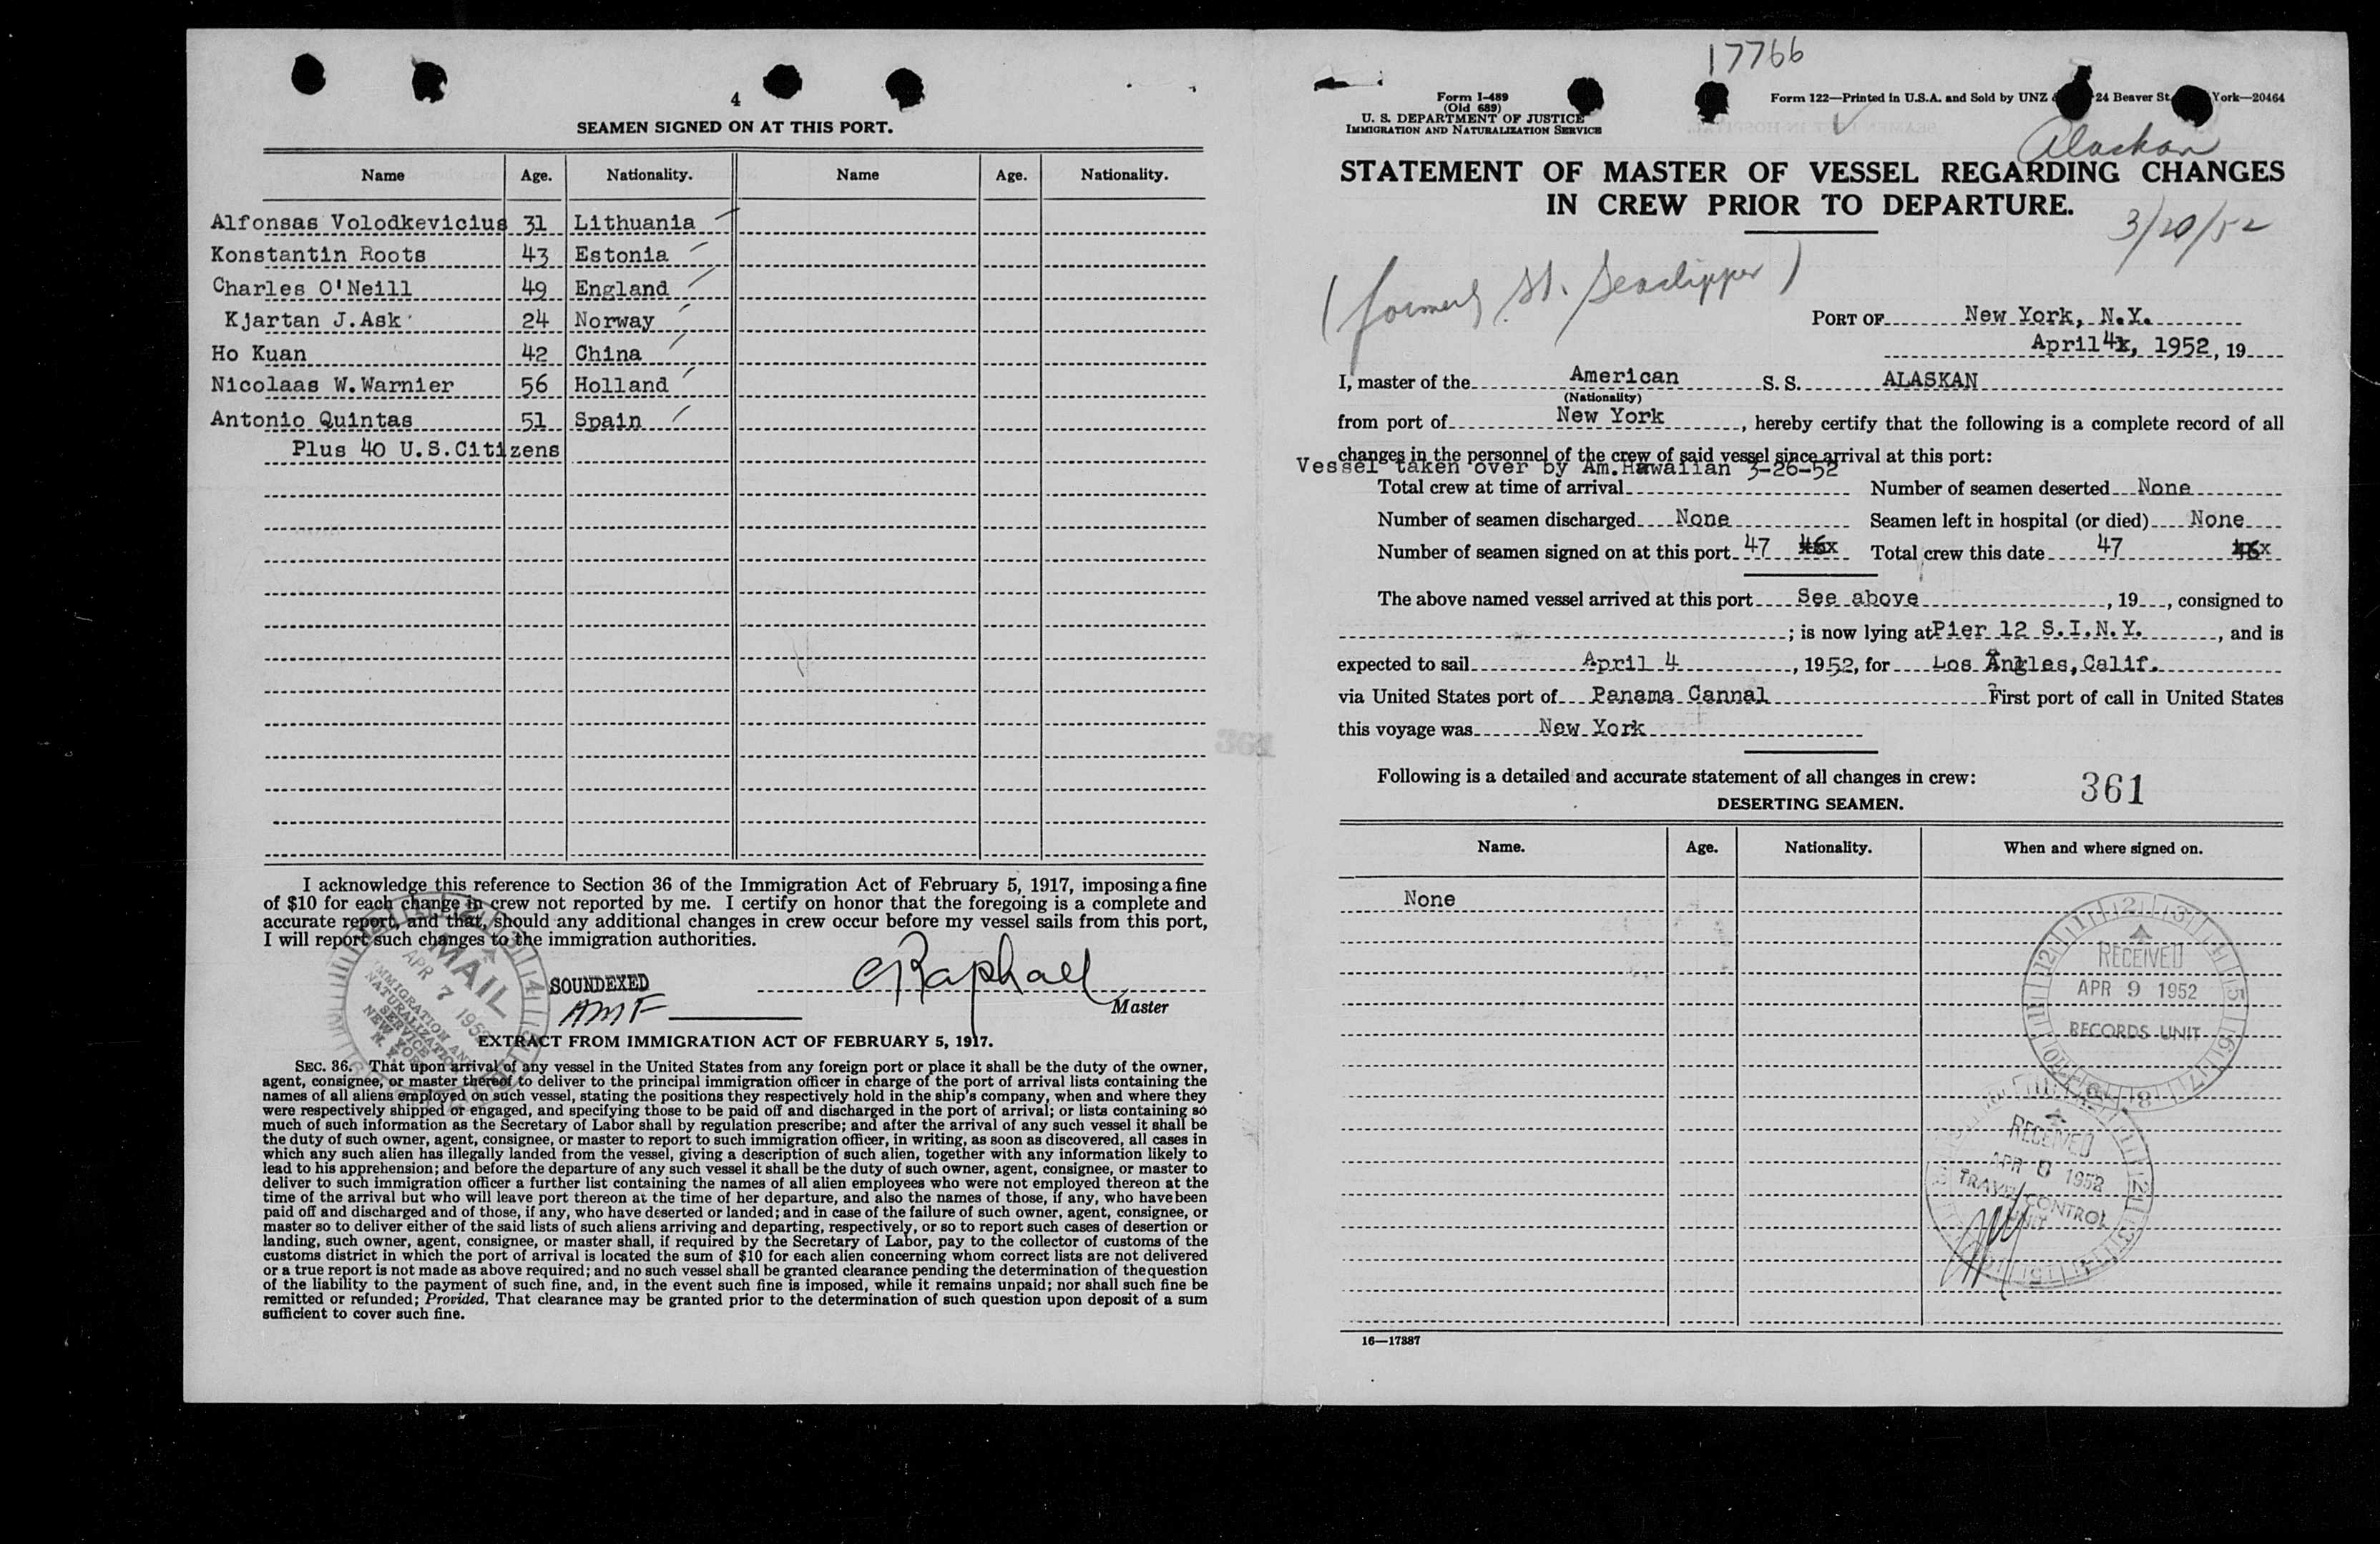 4
SEAMEN SIGNED ON AT THIS PORT.
Name Age. Nationality. Name Age. Nationality.
Alfonsas Volodkevicius 31 Lithuania
Konstantin Roots 43 Estonia
Charles O'Neill 49 England
Kjartan J.Ask 24 Norway
Ho Kuan 42 China
Nicolaas W.Warnier 56 Holland
Antonio Quintas 51 Spain
Plus 40 U.S.Citizens
I acknowledge this reference to Section 36 of the Immigration Act of February 5, 1917, imposing a fine
of $10 for each change in crew not reported by me. I certify on honor that the foregoing is a complete and
accurate report, and that, should any additional changes in crew occur before my vessel sails from this port,
I will report such changes to the immigration authorities.
MAIL
APR 7 1952
IMMIGRATION AND
NATURALIZATION
SERVICE
NEW YORK
N. Y.
SOUNDEXED
AMF
CRaphael
Master
EXTRACT FROM IMMIGRATION ACT OF FEBRUARY 5, 1917.
SEC. 36. That upon arrival of any vessel in the United States from any foreign port or place it shall be the duty of the owner,
agent, consignee, or master thereof to deliver to the principal immigration officer in charge of the port of arrival lists containing the
names of all aliens employed on such vessel, stating the positions they respectively hold in the ship's company, when and where they
were respectively shipped or engaged, and specifying those to be paid off and discharged in the port of arrival; or lists containing so
much of such information as the Secretary of Labor shall by regulation prescribe; and after the arrival of any such vessel it shall be
the duty of such owner, agent, consignee, or master to report to such immigration officer, in writing, as soon as discovered, all cases in
which any such alien has illegally landed from the vessel, giving a description of such alien, together with any information likely to
lead to his apprehension; and before the departure of any such vessel it shall be the duty of such owner, agent, consignee, or master to
deliver to such immigration officer a further list containing the names of all alien employees who were not employed thereon at the
time of the arrival but who will leave port thereon at the time of her departure, and also the names of those, if any, who have been
paid off and discharged and of those, if any, who have deserted or landed; and in case of the failure of such owner, agent, consignee, or
master so to deliver either of the said lists of such aliens arriving and departing, respectively, or so to report such cases of desertion or
landing, such owner, agent, consignee, or master shall, if required by the Secretary of Labor, pay to the collector of customs of the
customs district in which the port of arrival is located the sum of $10 for each alien concerning whom correct lists are not delivered
or a true report is not made as above required; and no such vessel shall be granted clearance pending the determination of the question
of the liability to the payment of such fine, and, in the event such fine is imposed, while it remains unpaid; nor shall such fine be
remitted or refunded; Provided, That clearance may be granted prior to the determination of such question upon deposit of a sum
sufficient to cover such fine.
17766
Form I-489
(Old 689)
U. S. DEPARTMENT OF JUSTICE
IMMIGRATION AND NATURALIZATION SERVICE
Form 122—Printed in U.S.A. and Sold by UNZ 24 Beaver St. York—20464
Alaskan
STATEMENT OF MASTER OF VESSEL REGARDING CHANGES
IN CREW PRIOR TO DEPARTURE.
3/20/52
(formerly St. Seaclipper)
PORT OF New York, N.Y.
April 4x, 1952, 19
I, master of the American S. S. ALASKAN
(Nationality)
from port of New York, hereby certify that the following is a complete record of all
changes in the personnel of the crew of said vessel since arrival at this port:
Vessel taken over by Am.Hawaiian 3-26-52
Total crew at time of arrival Number of seamen deserted None
Number of seamen discharged None Seamen left in hospital (or died) None
Number of seamen signed on at this port 47 46x Total crew this date 47 46x
The above named vessel arrived at this port See above, 19, consigned to
; is now lying at Pier 12 S.I.N.Y., and is
expected to sail April 4, 1952, for Los Angles, Calif.
via United States port of Panama Cannal First port of call in United States
this voyage was New York
Following is a detailed and accurate statement of all changes in crew:
361
DESERTING SEAMEN.
Name. Age. Nationality. When and where signed on.
None
RECEIVED
APR 9 1952
RECORDS UNIT
RECEIVED
APR 1952
TRAVEL CONTROL
UNIT
16—17887